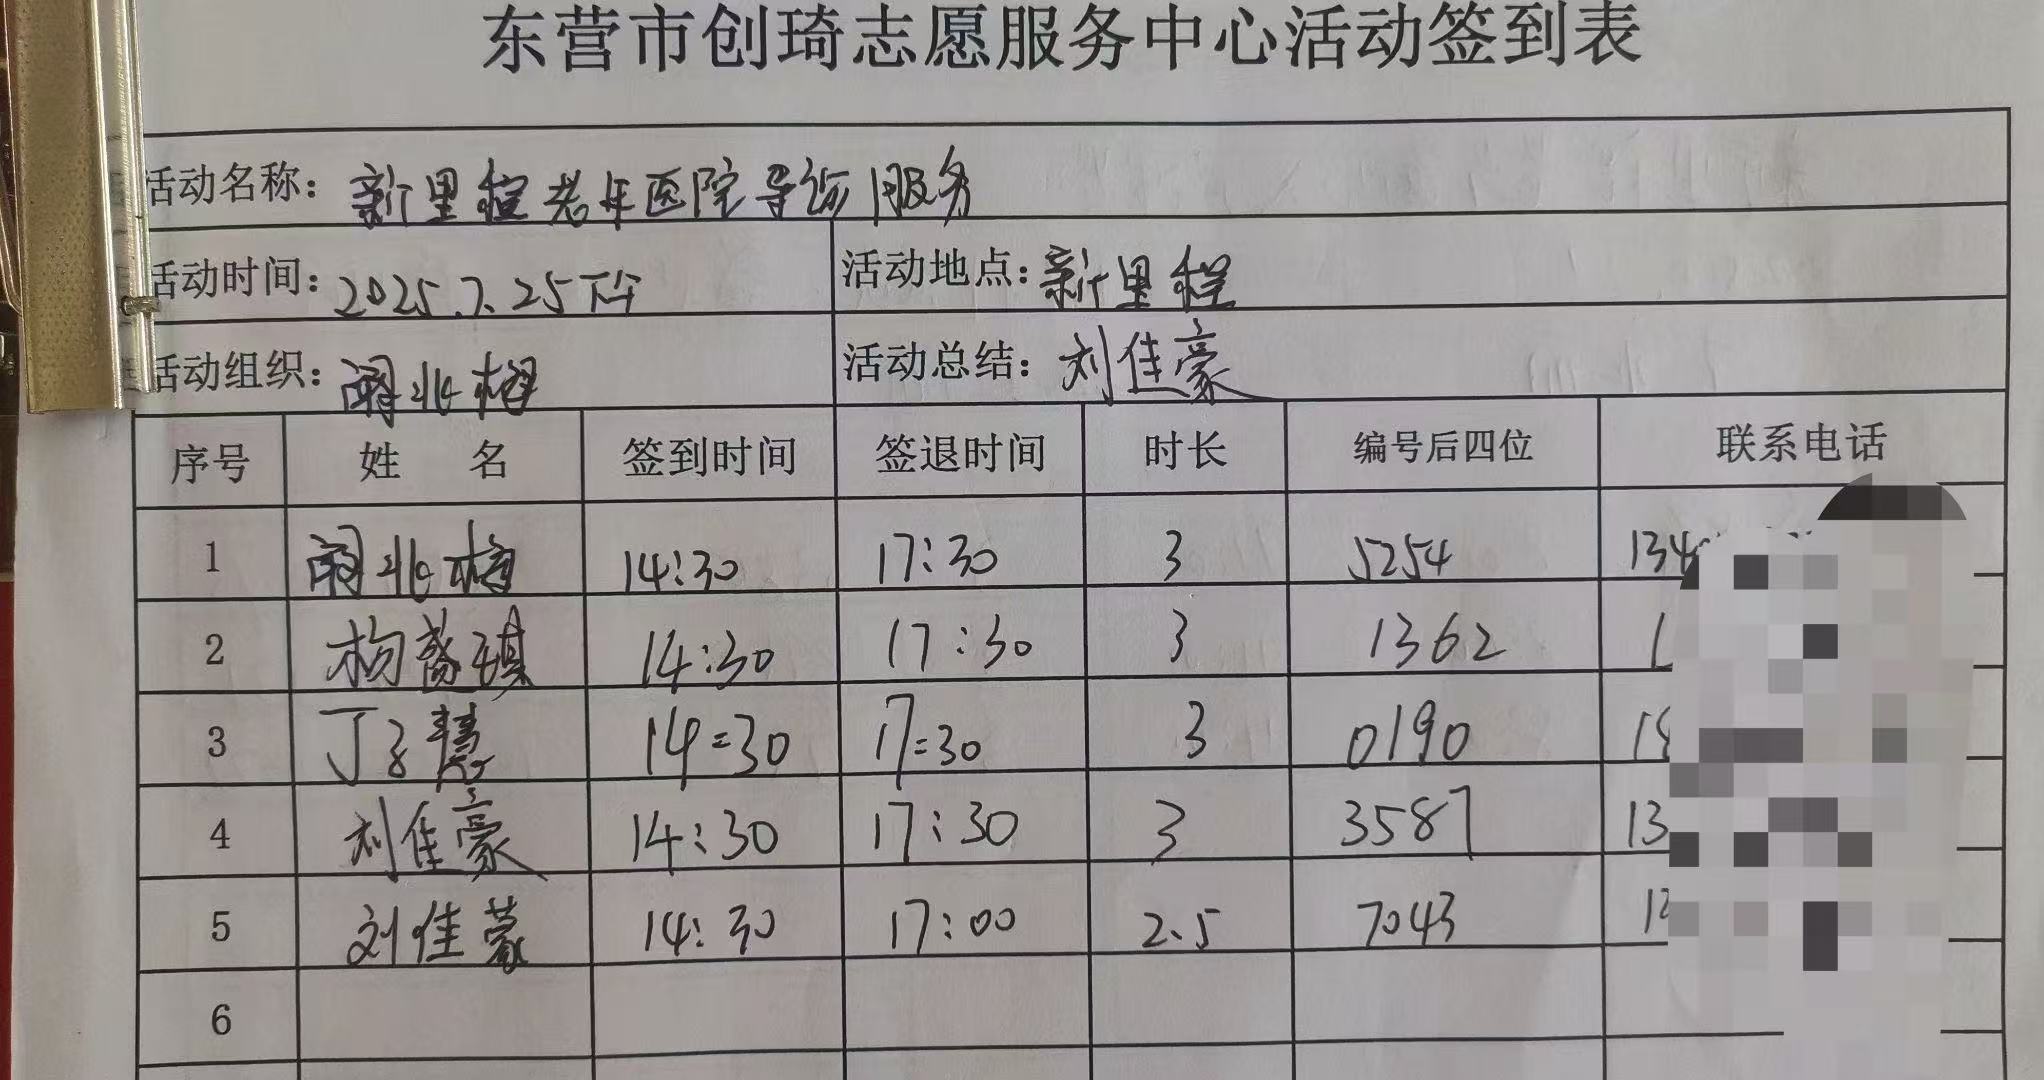 东营市创琦志愿服务中心活动签到表
活动名称：新里程老年医院导诊服务
活动时间：2025.7.25下午 活动地点：新里程
活动组织： 活动总结：刘佳豪
序号 姓 名 签到时间 签退时间 时长 编号后四位 联系电话
1 14:30 17:30 3 5254 134
2 杨盛琪 14:30 17:30 3 1362 1
3 丁子慧 14:30 17:30 3 0190
4 刘佳豪 14:30 17:30 3 3587 13
5 刘佳蒙 14:30 17:00 2.5 7043
6